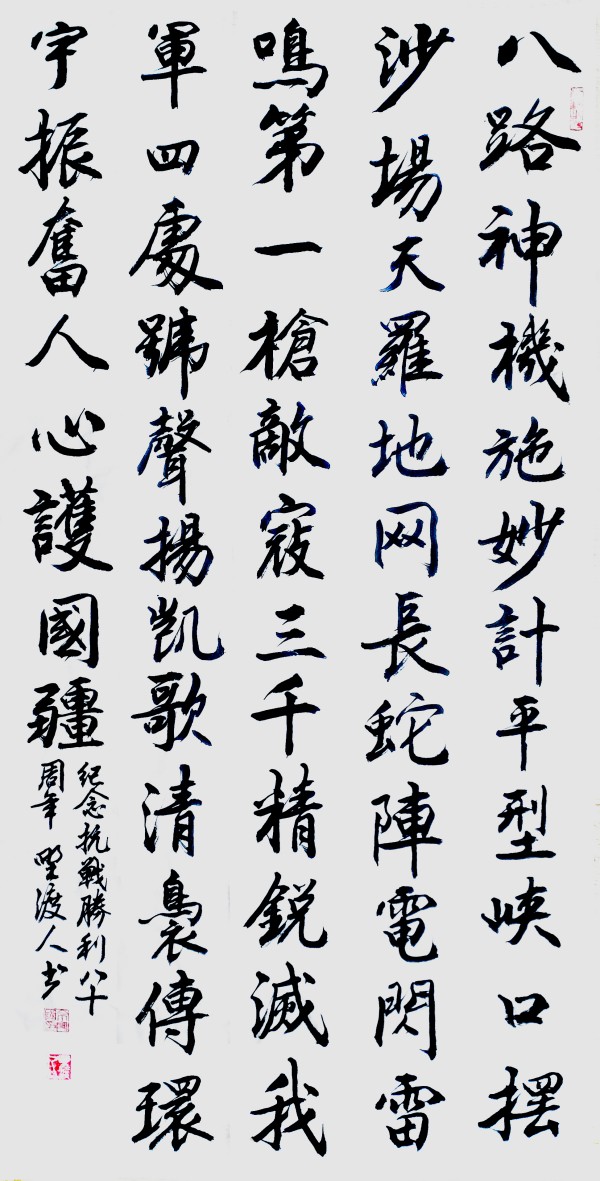 八路神機施妙計平型峽口摆
沙場天羅地网長蛇陣電閃雷
鳴第一槍敵寇三千精鋭滅我
軍四處號聲揚凯歌清裊傳環
宇振奮人心護國疆
紀念抗戰勝利八十
周年 野渡人书